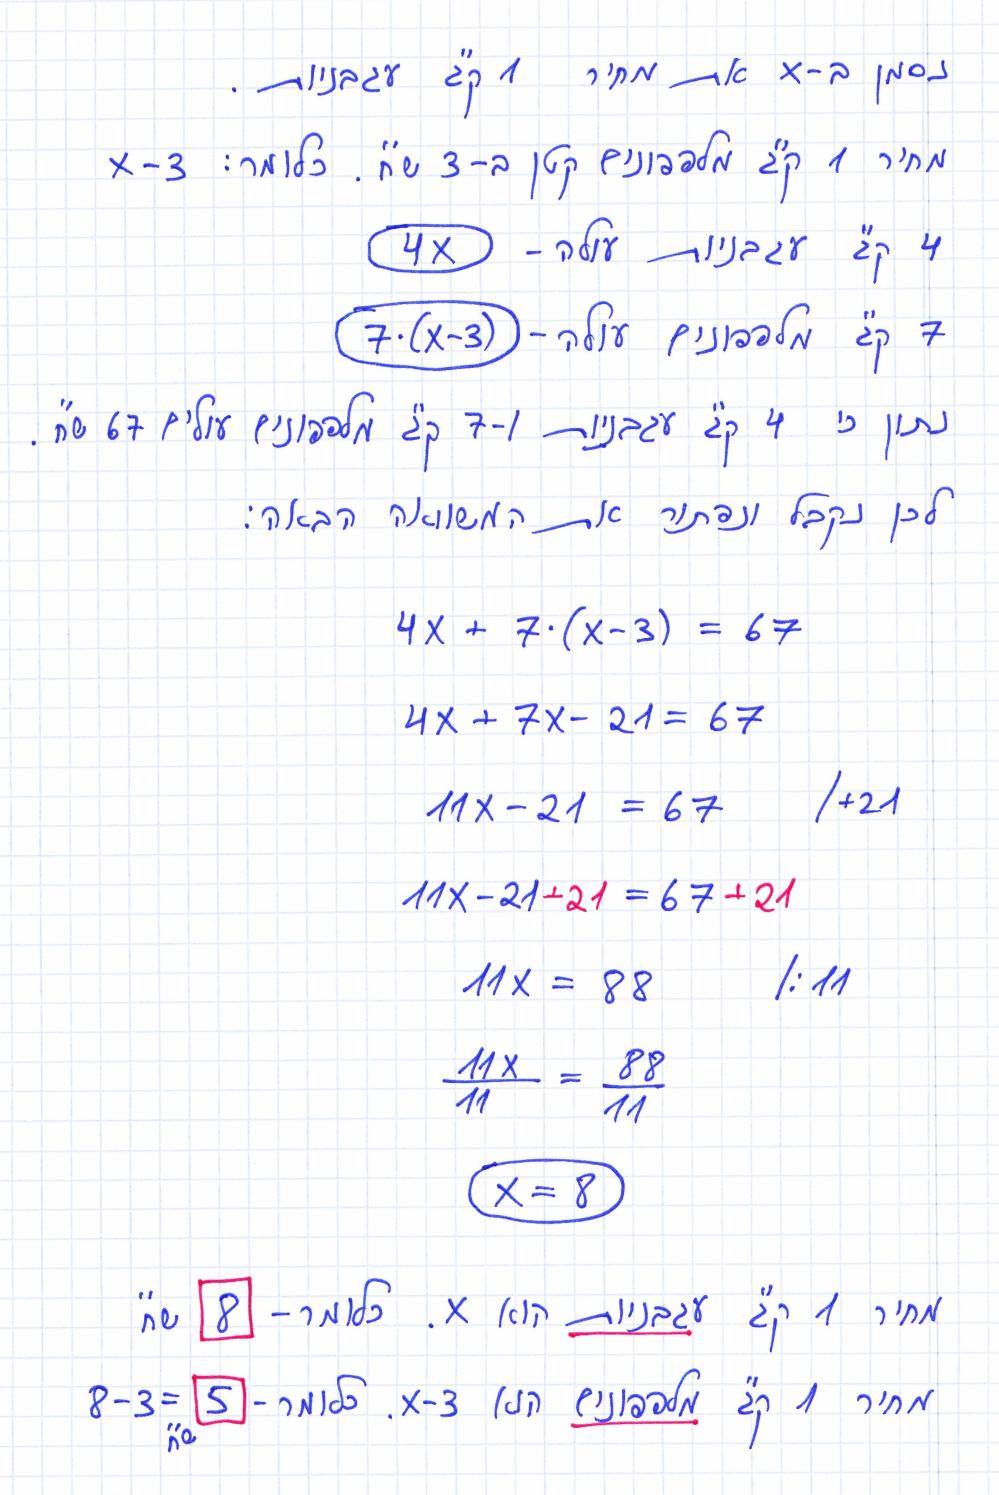 נסמן ב-x את מחיר 1 ק"ג עגבניות.
מחיר 1 ק"ג מלפפונים קטן ב-3 ש"ח. כלומר: x-3
4 ק"ג עגבניות עולה - 4x
7 ק"ג מלפפונים עולה - 7·(x-3)
נתון כי 4 ק"ג עגבניות ו-7 ק"ג מלפפונים עולים 67 ש"ח.
לכן נקבל ונפתור את המשוואה הבאה:
4x + 7·(x-3) = 67
4x + 7x - 21 = 67
11x - 21 = 67 /+21
11x - 21 + 21 = 67 + 21
11x = 88 /:11
11x/11 = 88/11
x = 8
מחיר 1 ק"ג עגבניות הוא x. כלומר - 8 ש"ח
מחיר 1 ק"ג מלפפונים הוא x-3. כלומר - 8-3=5 ש"ח